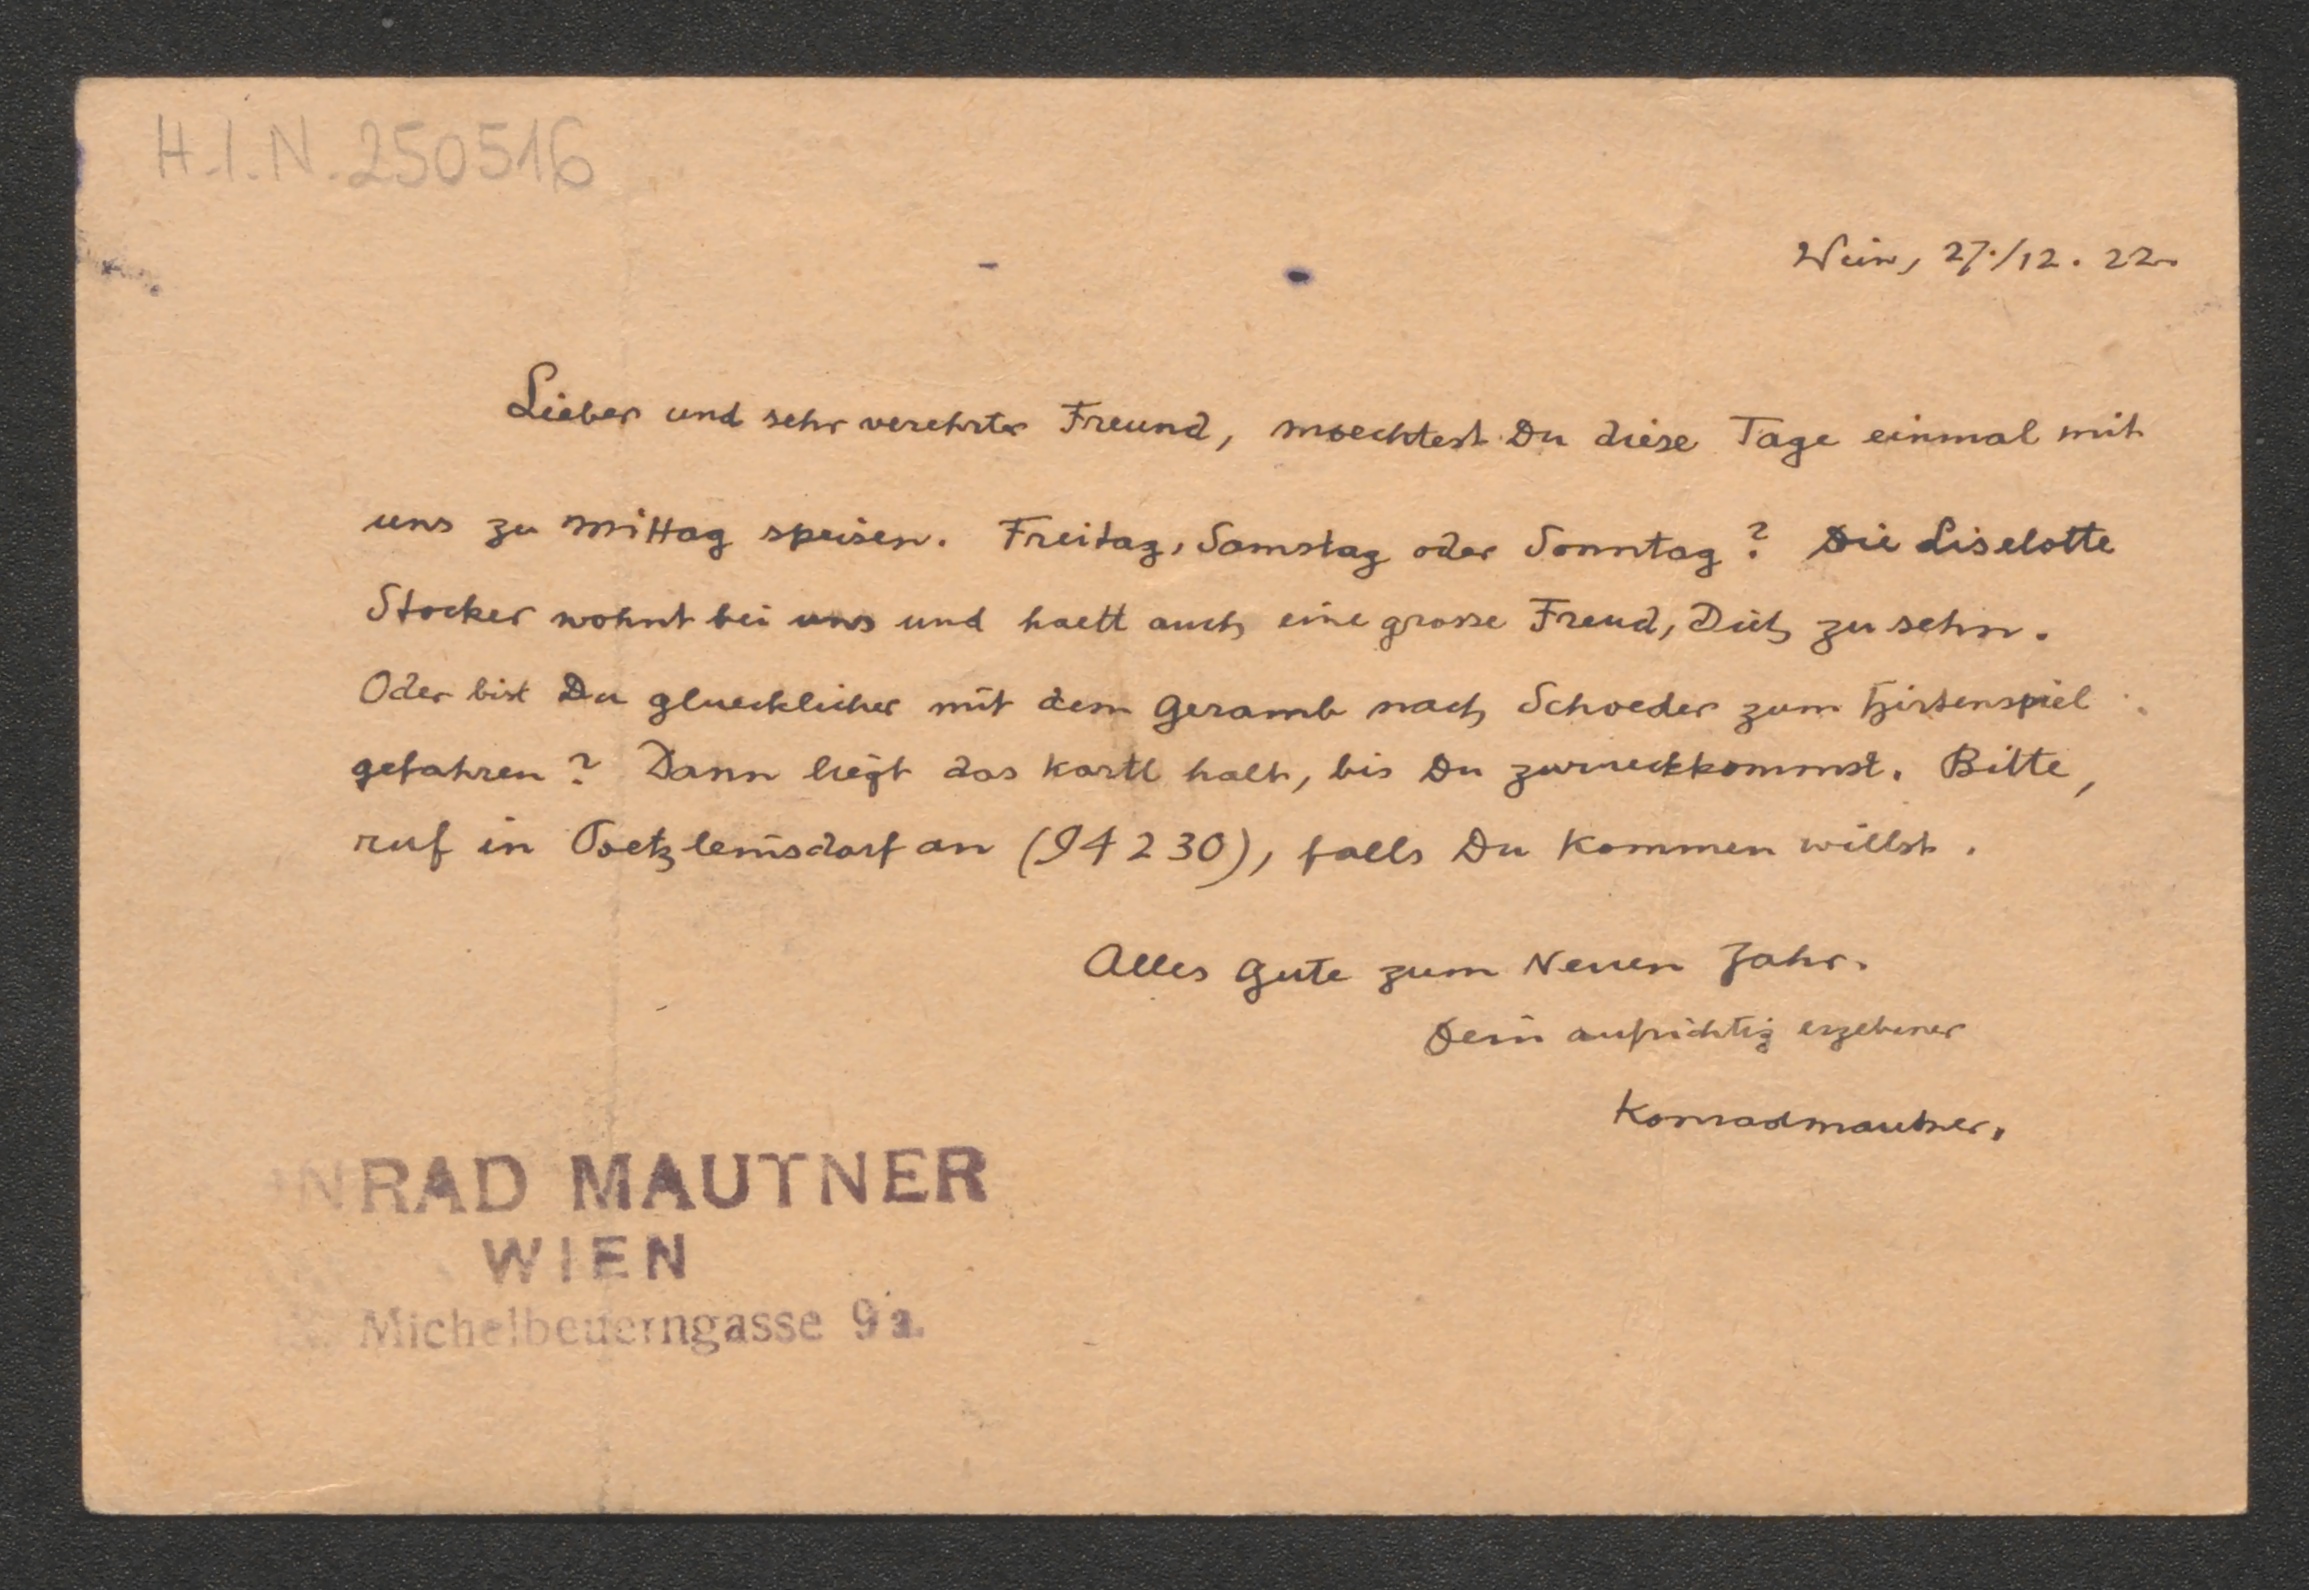 H.I.N. 250516
Wien, 27./12. 22.
Lieber und sehr verehrter Freund, moechtest Du diese Tage einmal mit
uns zu Mittag speisen. Freitag, Samstag oder Sonntag? Die Liselotte
Stocker wohnt bei uns und haett auch eine grosse Freud, Dich zu sehn.
Oder bist Du gluecklicher mit dem Geramb nach Schoeder zum Hirtenspiel
gefahren? Dann liegt das Kartl halt, bis Du zurueckkommst. Bitte,
ruf in Poetzleinsdorf an (94 2 30), falls Du kommen willst.
Alles Gute zum Neuen Jahr.
Dein aufrichtig ergebener
Konradmautner.
NRAD MAUTNER
WIEN
Michelbeuerngasse 9a.